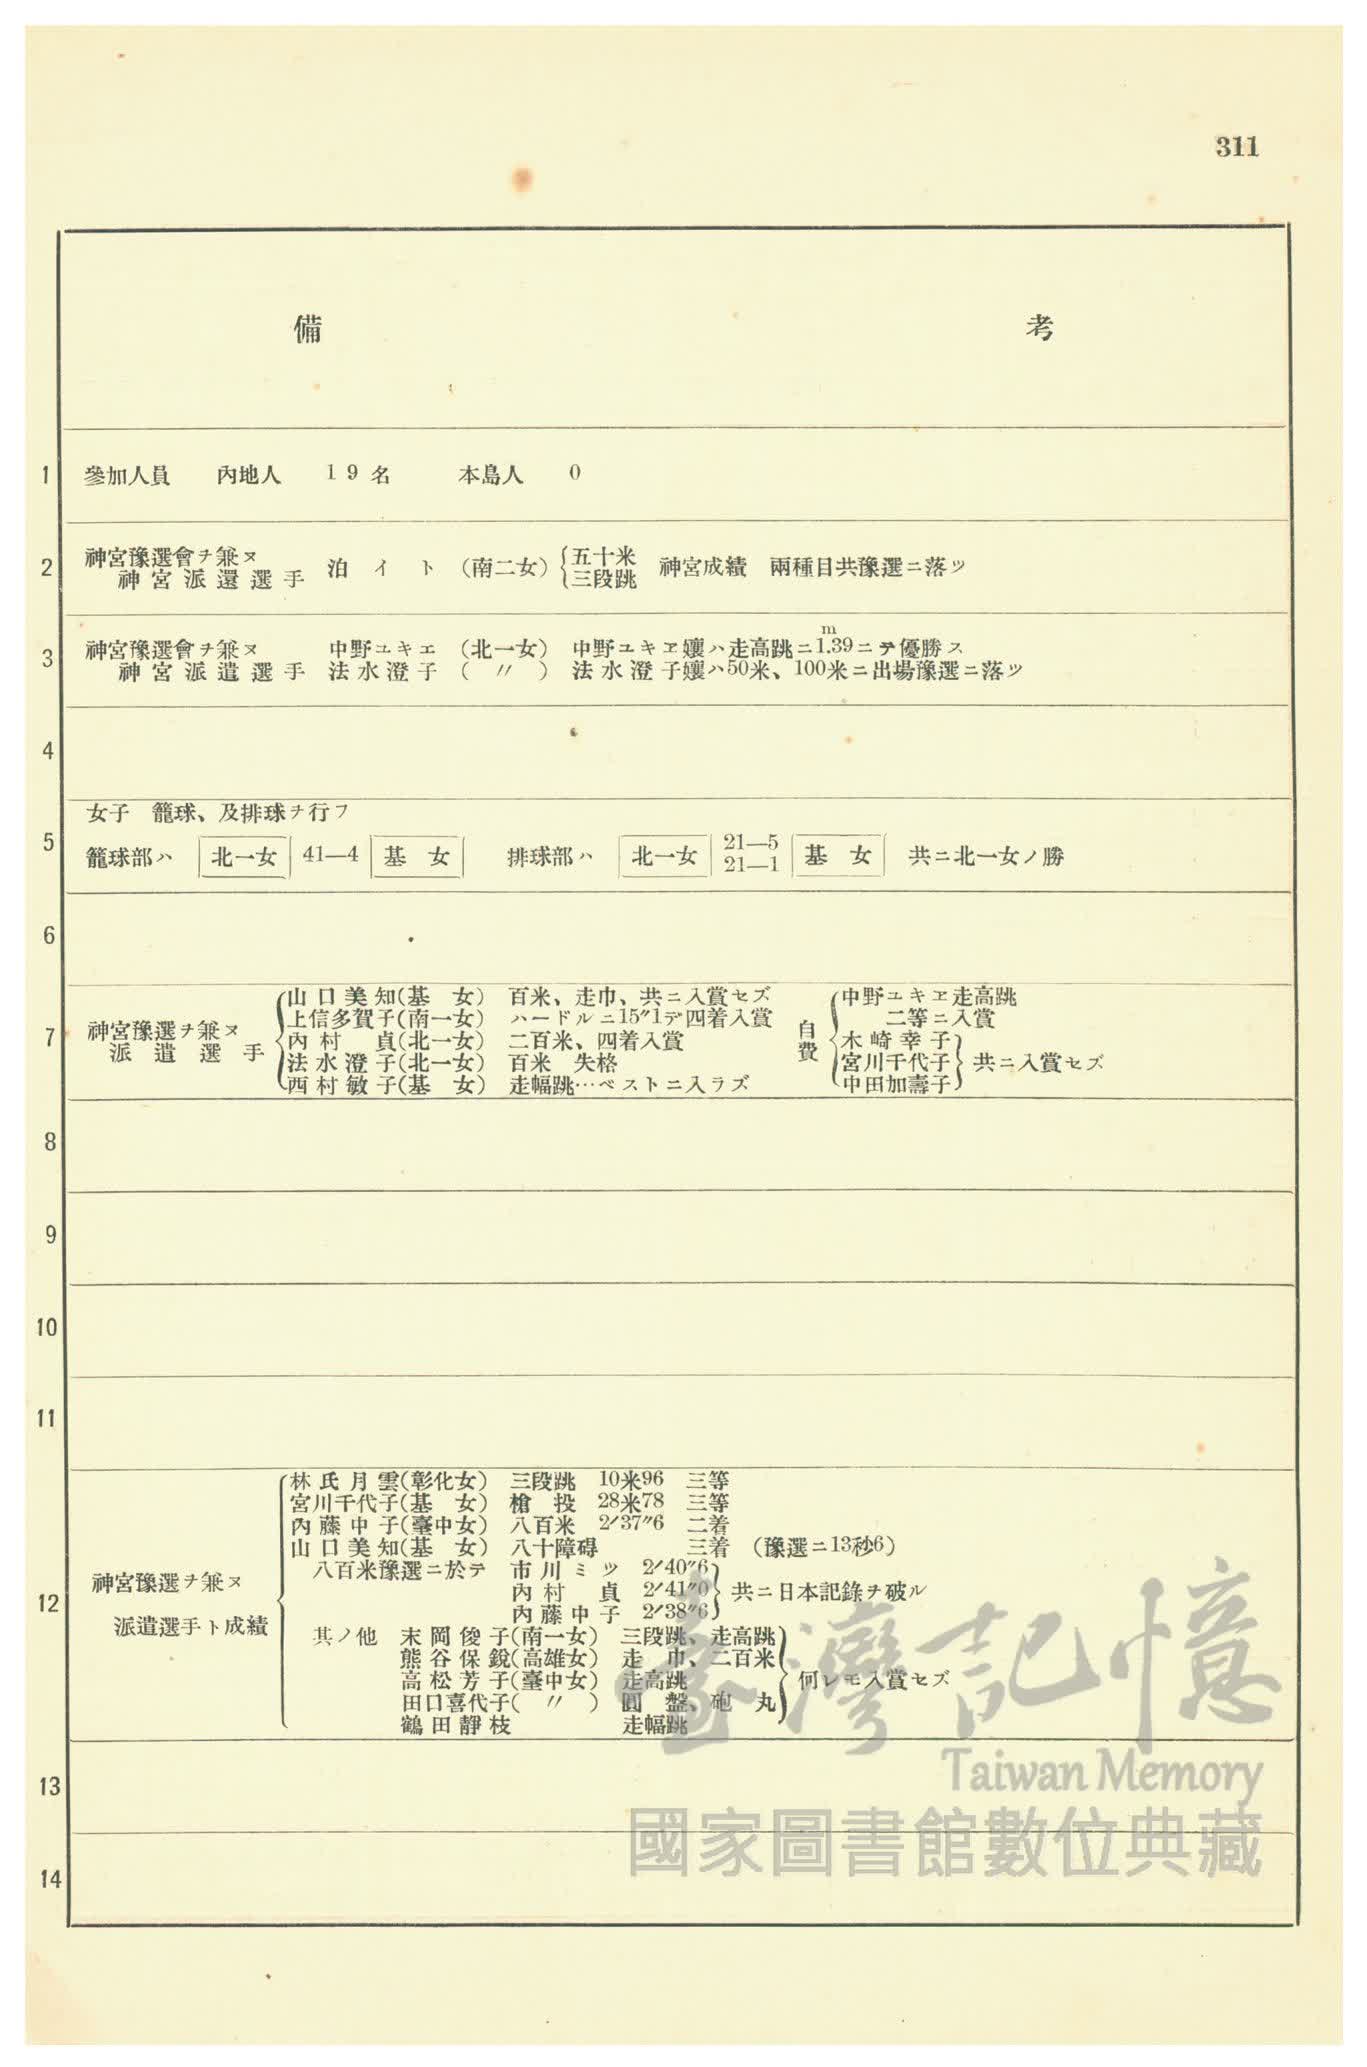 311
備 考
1 參加人員 內地人 19名 本島人 0
2 神宮豫選會ヲ兼ヌ
神宮派還選手 泊イト (南二女) 五十米 三段跳 神宮成績 兩種目共豫選ニ落ツ
3 神宮豫選會ヲ兼ヌ 中野ユキエ (北一女) 中野ユキヱ孃ハ走高跳ニ1.39mニテ優勝ス
神宮派遣選手 法水澄子 (〃) 法水澄子孃ハ50米、100米ニ出場豫選ニ落ツ
4
5 女子 籠球、及排球ヲ行フ
籠球部ハ 北一女 41—4 基女 排球部ハ 北一女 21—5 21—1 基女 共ニ北一女ノ勝
6
7 神宮豫選ヲ兼ヌ
派遣選手
山口美知(基女) 百米、走巾、共ニ入賞セズ
上信多賀子(南一女) ハードルニ15″1デ四着入賞
內村貞(北一女) 二百米、四着入賞
法水澄子(北一女) 百米 失格
西村敏子(基女) 走幅跳…ベストニ入ラズ
自費
中野ユキヱ走高跳
二等ニ入賞
木崎幸子
宮川千代子 共ニ入賞セズ
中田加壽子
8
9
10
11
12 神宮豫選ヲ兼ヌ
派遣選手ト成績
林氏月雲(彰化女) 三段跳 10米96 三等
宮川千代子(基女) 槍投 28米78 三等
內藤中子(臺中女) 八百米 2′37″6 二着
山口美知(基女) 八十障碍 三着 (豫選ニ13秒6)
八百米豫選ニ於テ 市川ミツ 2′40″6
內村貞 2′41″0 共ニ日本記錄ヲ破ル
內藤中子 2′38″6
其ノ他 末岡俊子(南一女) 三段跳、走高跳
熊谷保銳(高雄女) 走巾、二百米
高松芳子(臺中女) 走高跳 何レモ入賞セズ
田口喜代子(〃) 圓盤、砲丸
鶴田靜枝 走幅跳
13
14
臺灣記憶
Taiwan Memory
國家圖書館數位典藏